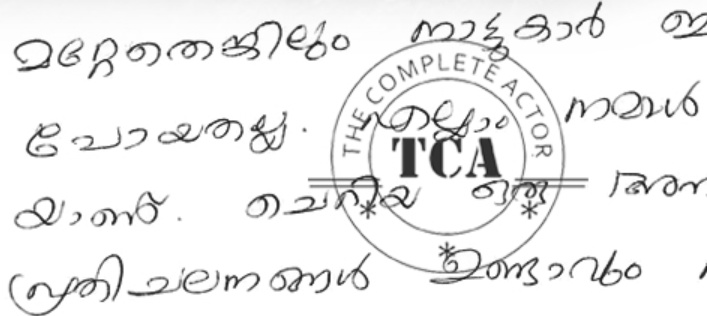 മറ്റേതെങ്കിലും നാട്ടുകാർ
പോയതല്ല. എല്ലാം നമ്മൾ
യാണ്. ചെറിയ ഒരു
പ്രതിചലനങ്ങൾ ഉണ്ടാവും
THE COMPLETE ACTOR
TCA